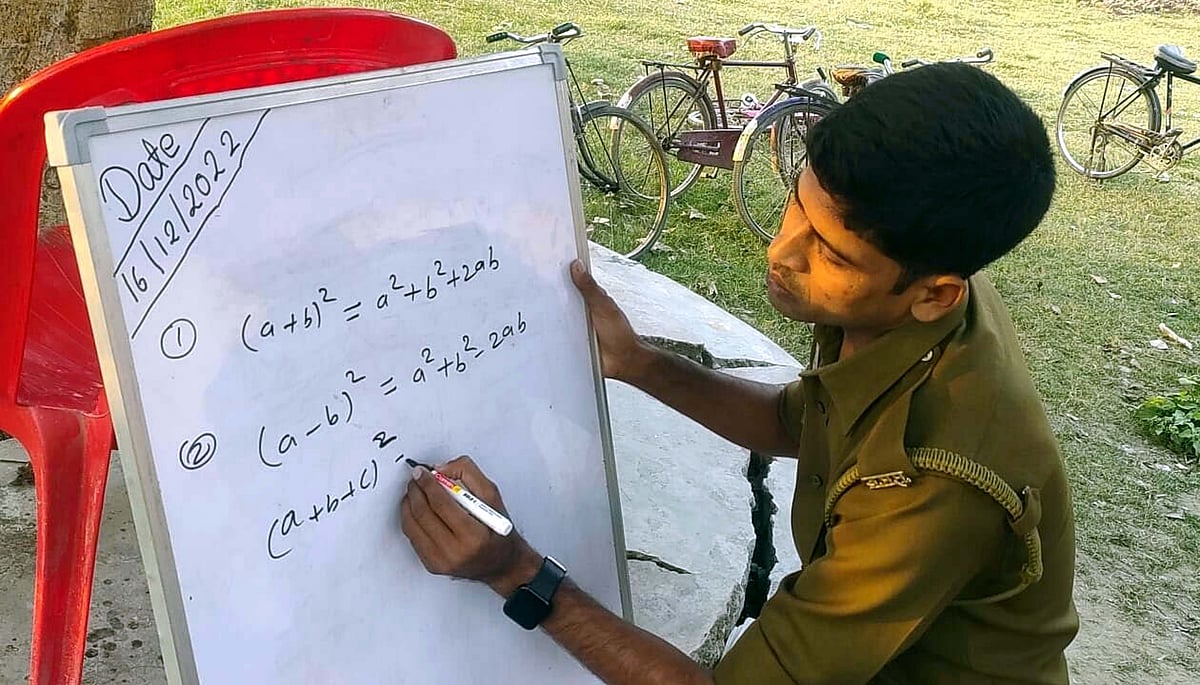 Date
16/12/2022
① (a+b)² = a²+b²+2ab
② (a-b)² = a²+b²-2ab
(a+b+c)² =